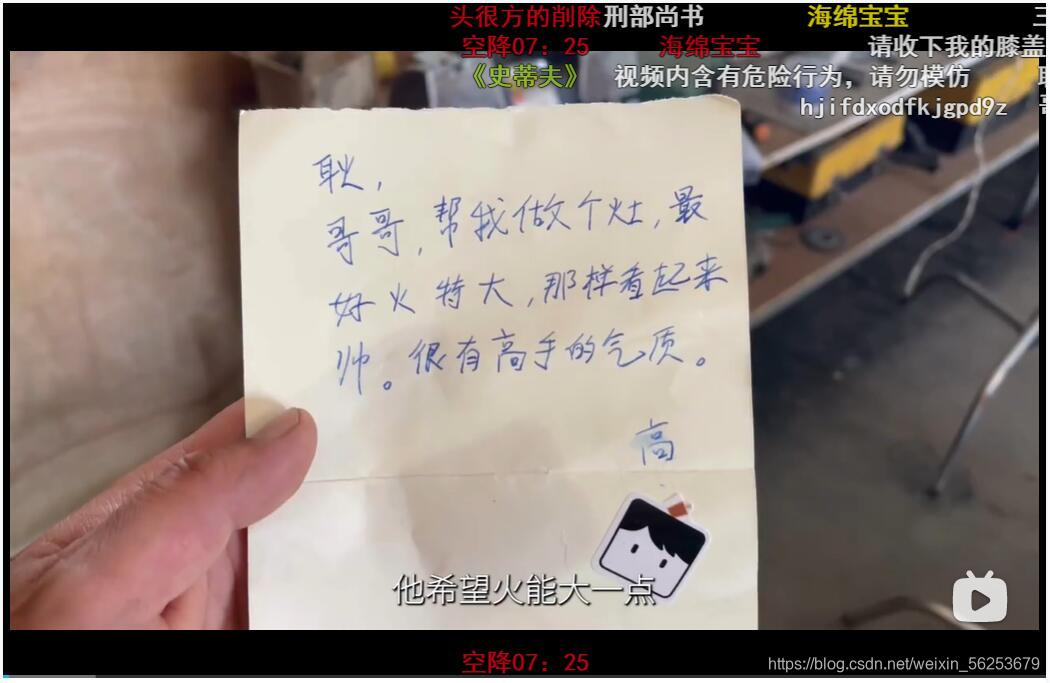 头很方的削除 刑部尚书 海绵宝宝
空降07：25 海绵宝宝 请收下我的膝盖
《史蒂夫》 视频内含有危险行为，请勿模仿
hjifdxodfkjgpd9z
耿，
哥哥，帮我做个灶，最
好火特大，那样看起来
帅。很有高手的气质。
高
他希望火能大一点
空降07：25
https://blog.csdn.net/weixin_56253679